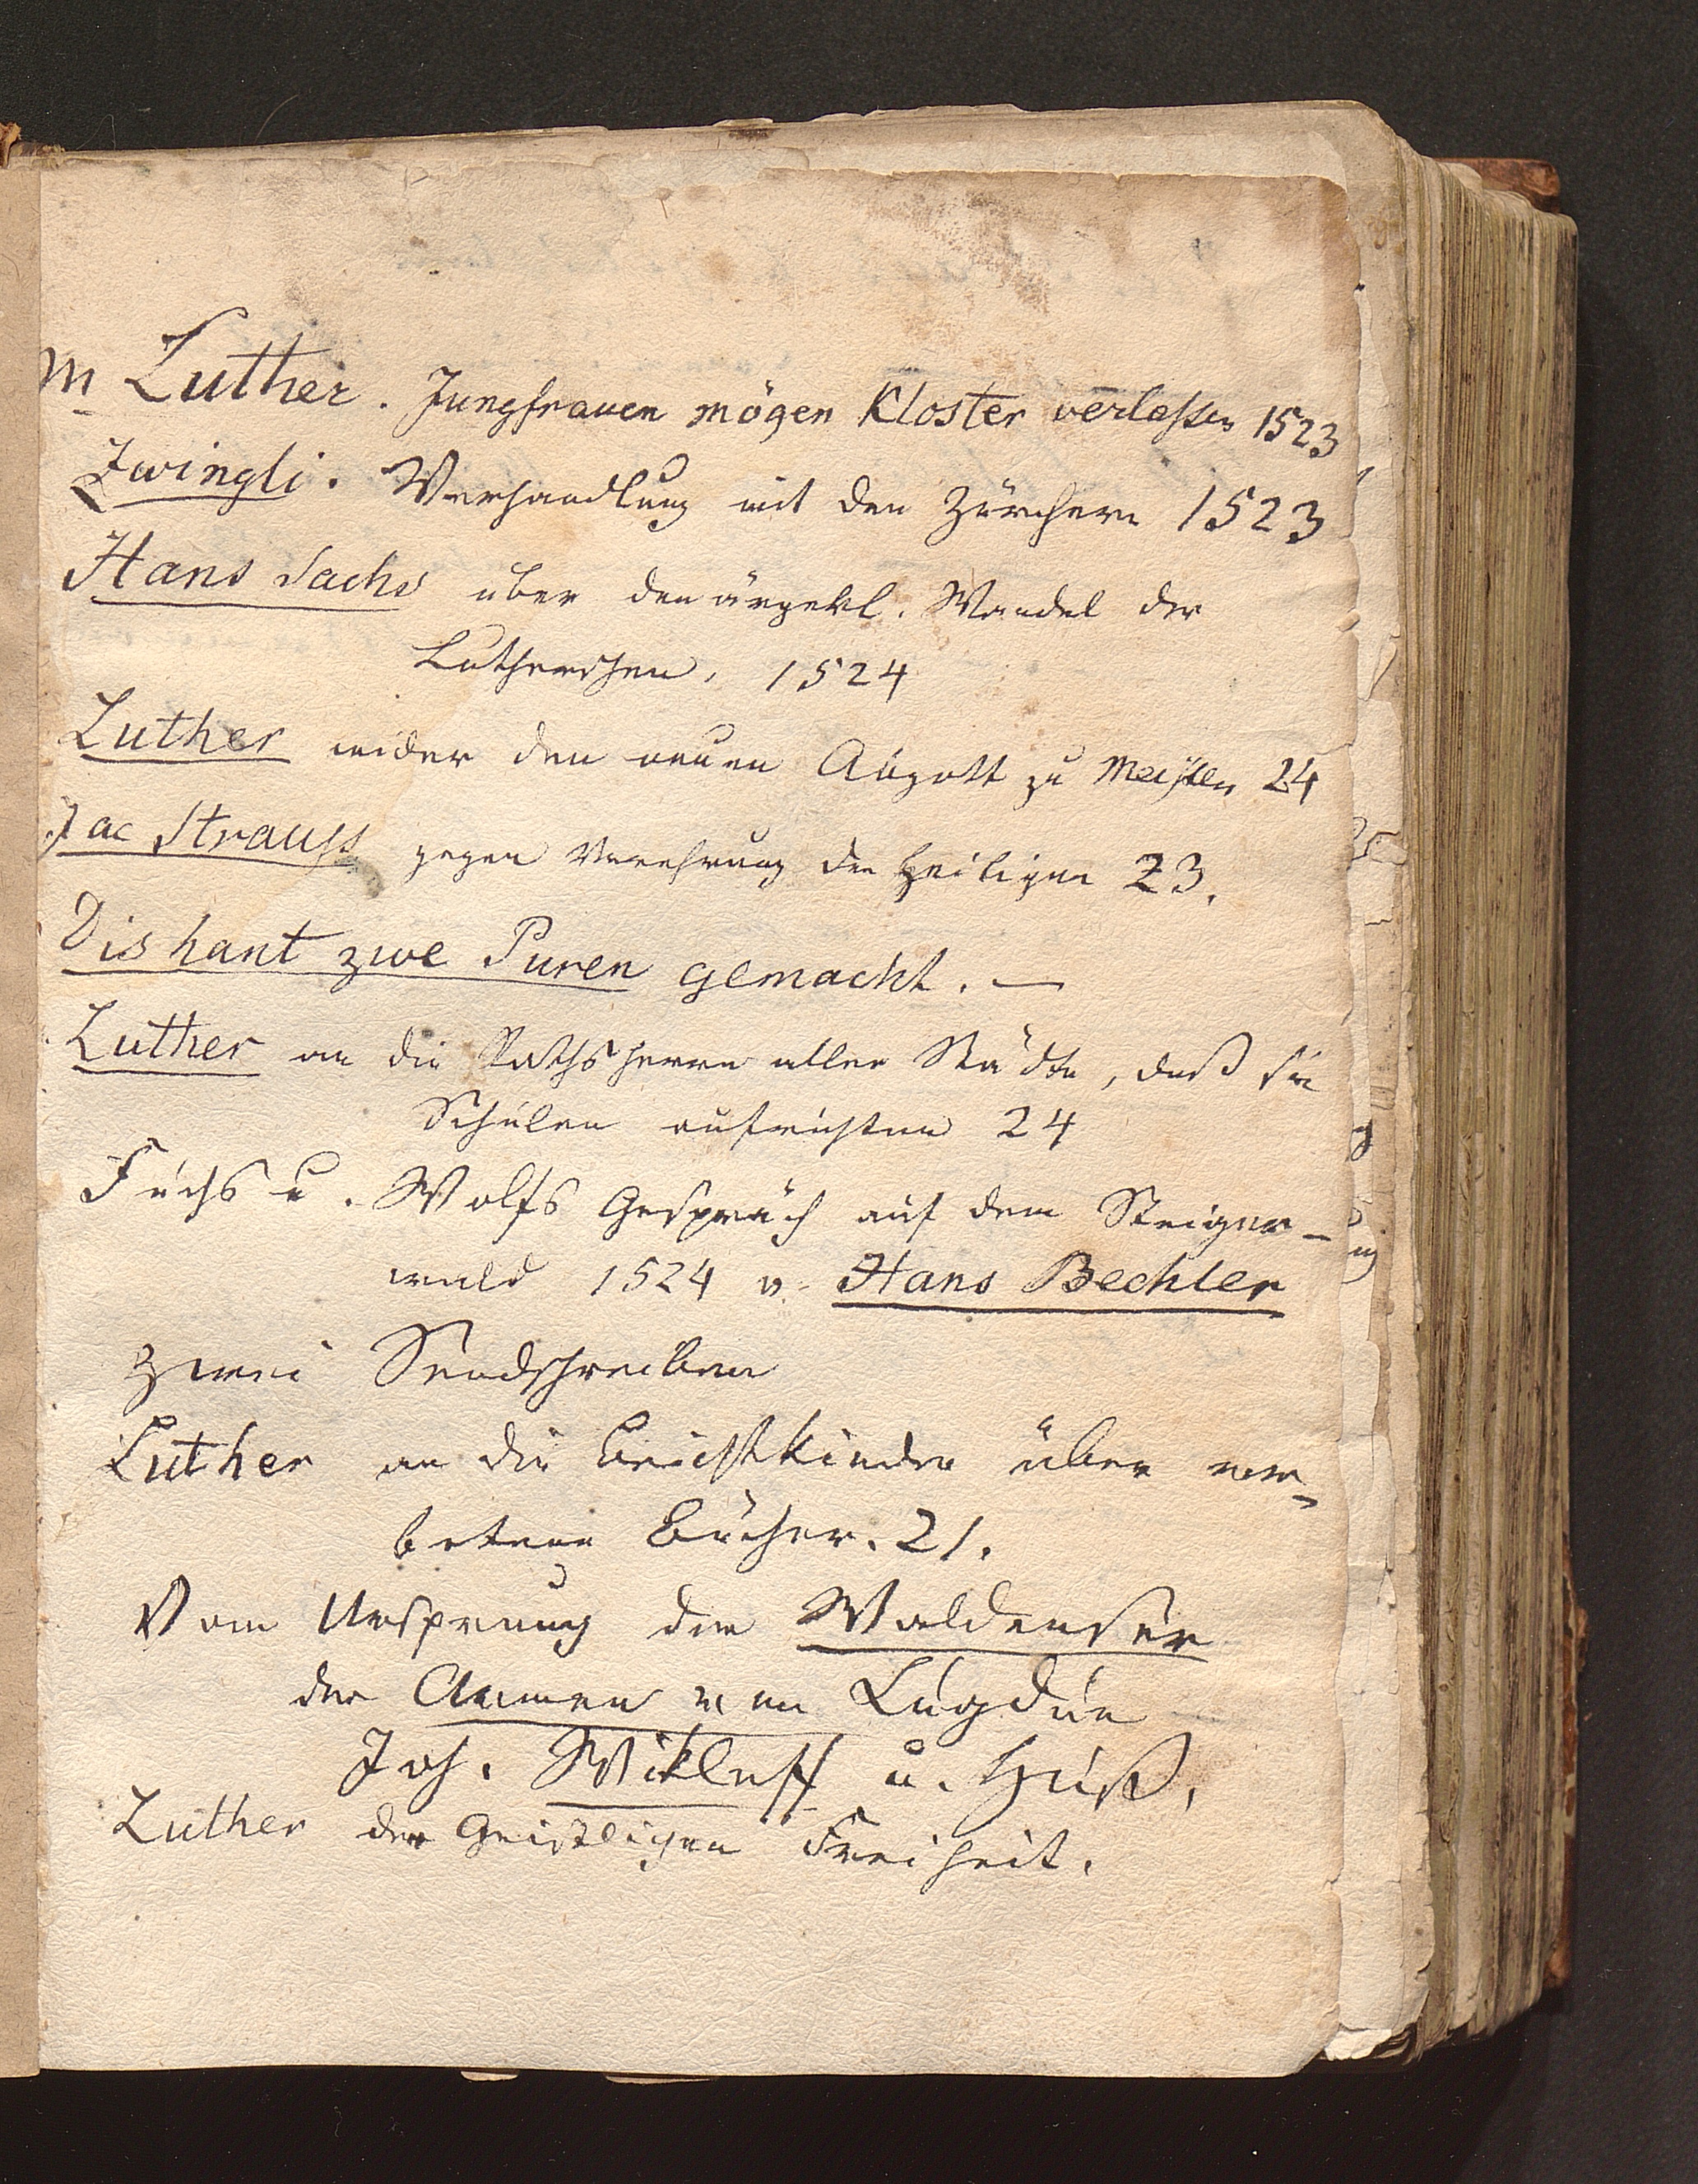 M Luther. Jungfrauen mögen Kloster verlaßen 1523
Zwingli. Verhandlung mit den Zürchern 1523
Hans Sachs über den ärgerl. Wandel der
Lutherschen, 1524
Luther wider den neuen Abgott zu Meißen 24
Jac Strauß gegen Verehrung der Heiligen 23.
Dis hant zwe Puren gemacht. —
Luther an die Rathsherrn aller Städte, daß sie
Schulen aufrichten 24
Fuchs u. Wolfs Gespräch auf dem Steiger-
wald 1524 v. Hans Bechler
Zwei Sendschreiben
Luther an die Beichtkinder über ver-
botene Bücher. 21.
Vom Ursprung der Waldenser
der Armen von Lugdun
Joh. Wikleff u. Huß.
Luther der Geistlichen Freiheit.